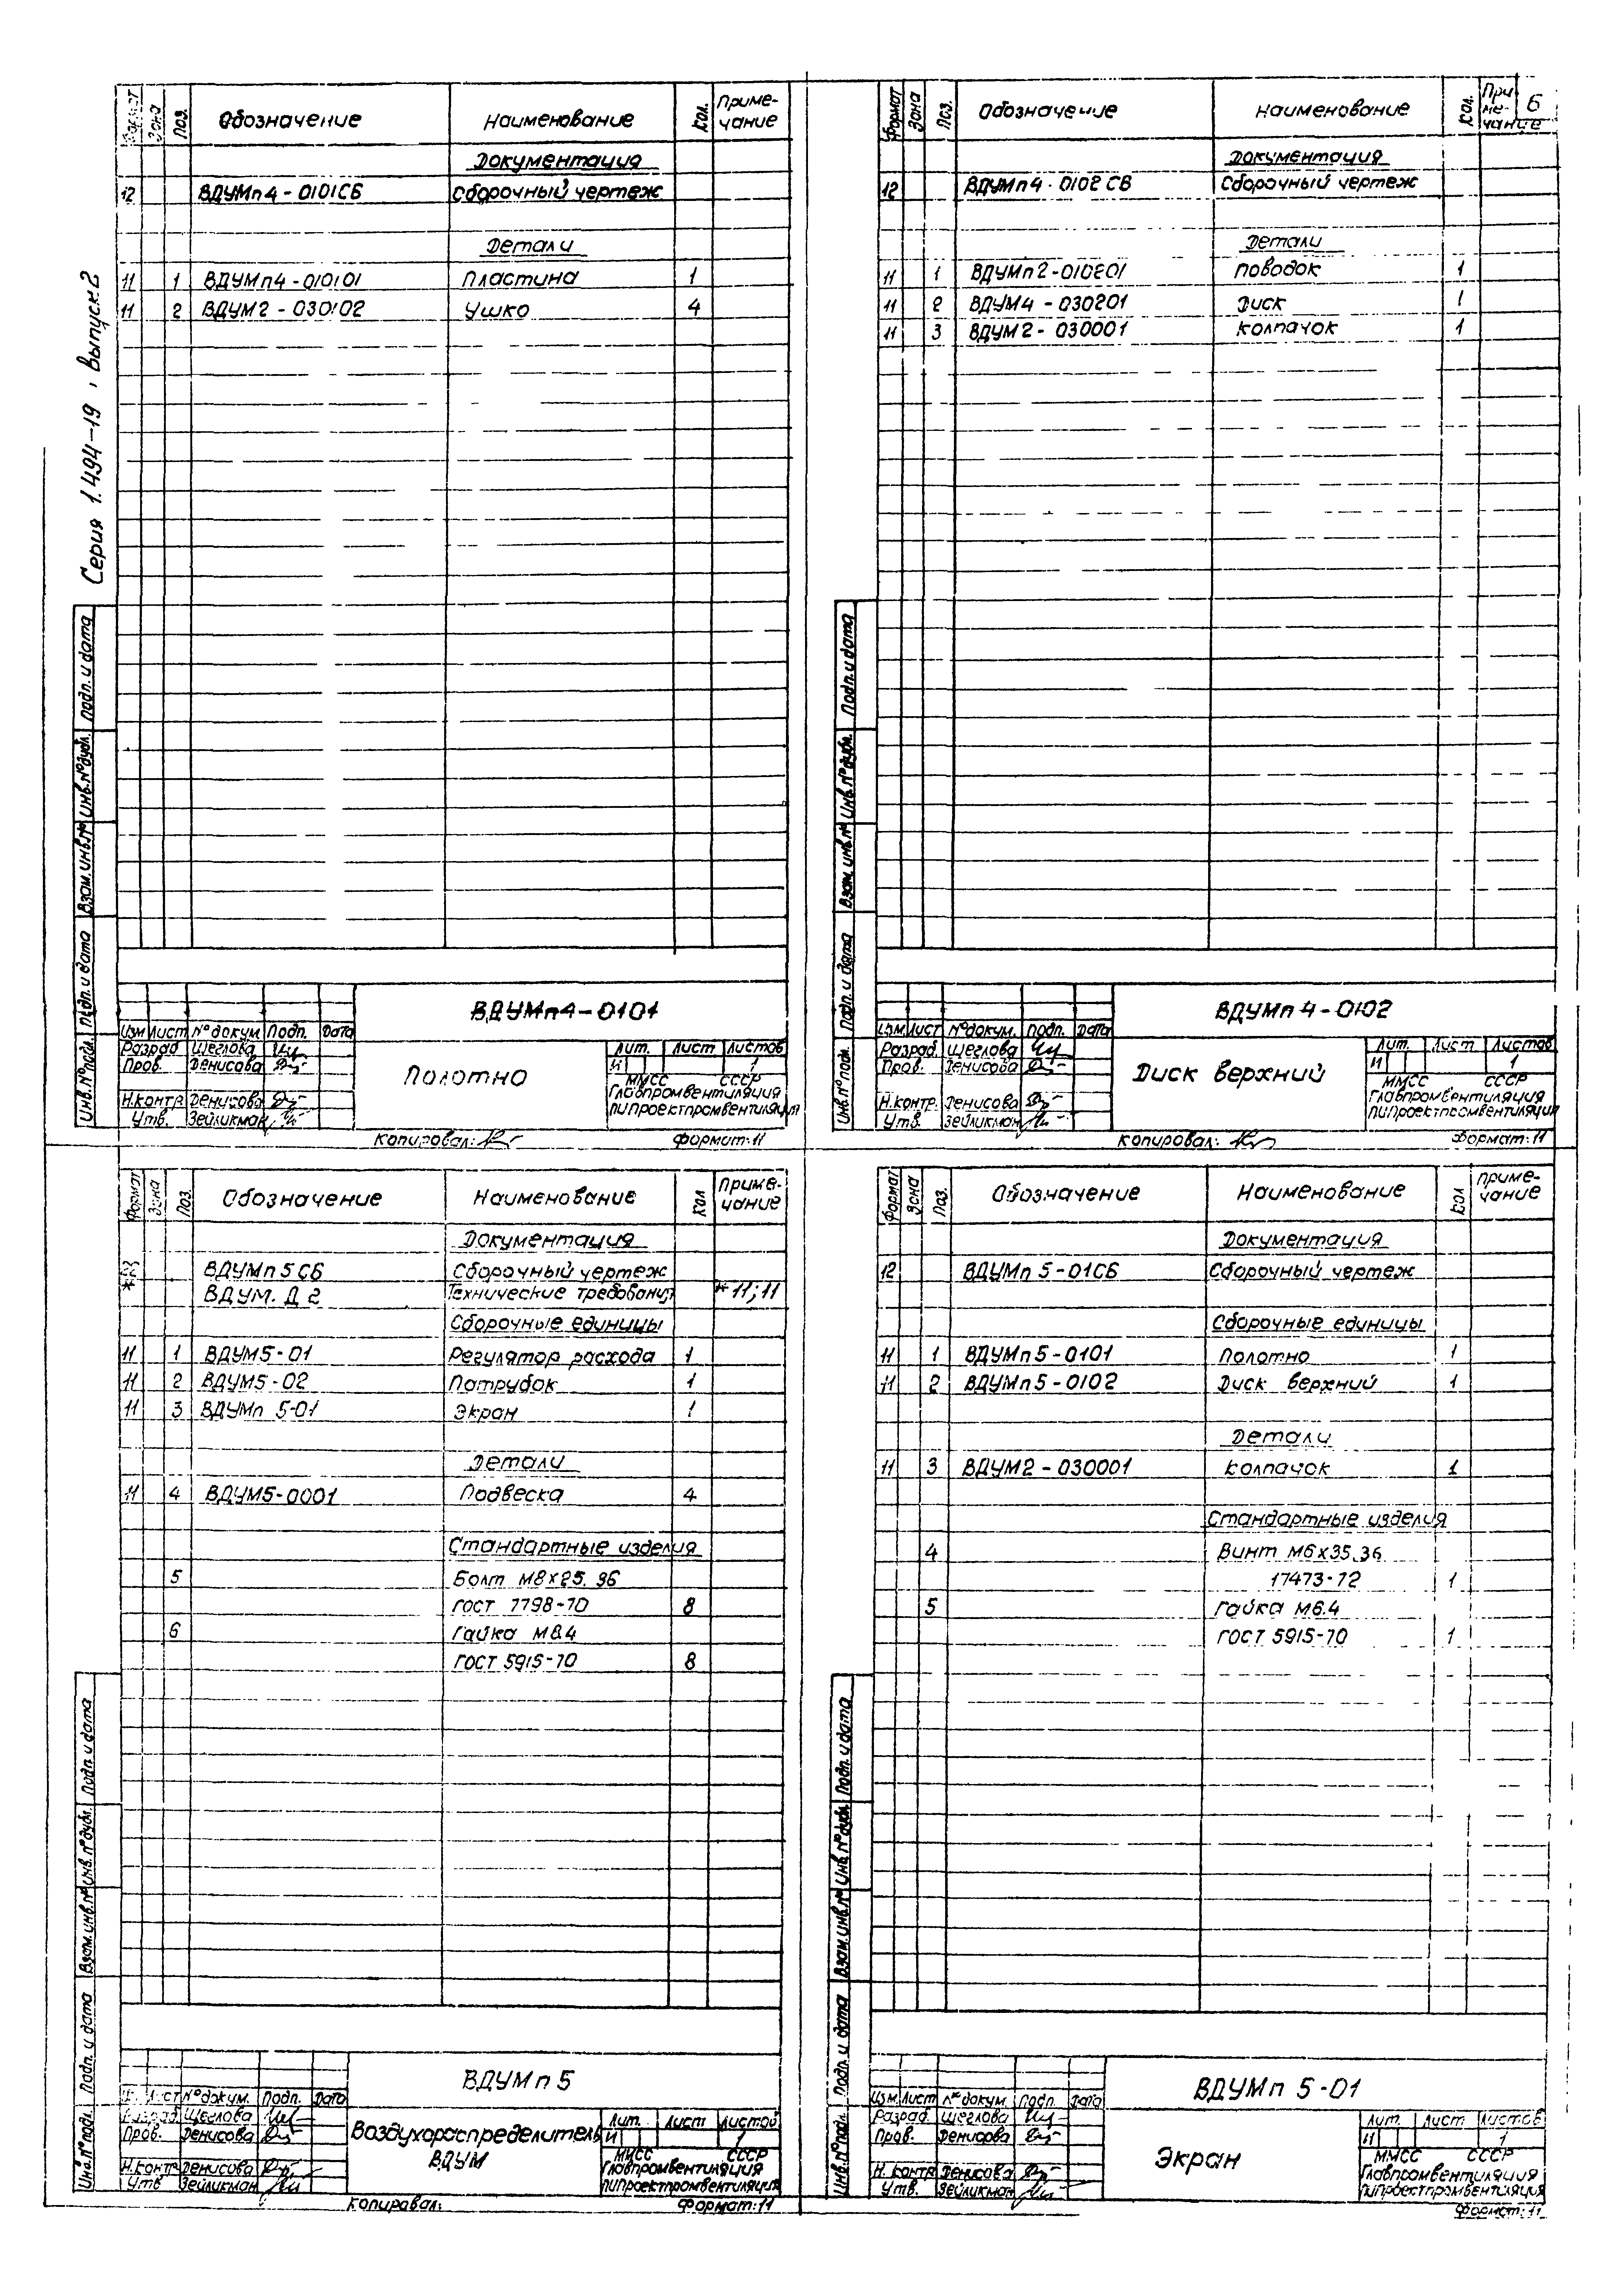 Серия 1.494-19, выпуск 2
Формат Зона Поз. Обозначение Наименование Кол. Приме-чание
Документация
12 ВДУМп4-0101СБ Сборочный чертеж
Детали
11 1 ВДУМп4-010101 Пластина 1
11 2 ВДУМ2-030102 Ушко 4
Подп. и дата
Инв.№дубл.
Взам.инв.№
Подп. и дата
Инв.№подл.
ВДУМп4-0101
Изм Лист №докум. Подп. Дата
Разраб Щеглова
Пров. Денисова
Н.контр. Денисова
Утв. Зейликман
Полотно
Лит. Лист Листов
И 1
ММСС СССР
Главпромвентиляция
ПИПроектпромвентиляция
Копировал: Формат:11
6
Формат Зона Поз. Обозначение Наименование Кол. При-ме-чание
Документация
12 ВДУМп4-0102СБ Сборочный чертеж
Детали
11 1 ВДУМп2-010201 Поводок 1
11 2 ВДУМ4-030201 Диск 1
11 3 ВДУМ2-030001 Колпачок 1
Подп. и дата
Инв.№дубл.
Взам.инв.№
Подп. и дата
Инв.№подл.
ВДУМп4-0102
Изм. Лист №докум. Подп. Дата
Разраб. Щеглова
Пров. Денисова
Н.контр. Денисова
Утв. Зейликман
Диск верхний
Лит. Лист Листов
И 1
ММСС СССР
Главпромвентиляция
ПИПроектпромвентиляция
Копировал: Формат:11
Формат Зона Поз. Обозначение Наименование Кол Приме-чание
Документация
ВДУМп5СБ Сборочный чертеж
ВДУМ.Д2 Технические требования *11;11
Сборочные единицы
11 1 ВДУМ5-01 Регулятор расхода 1
11 2 ВДУМ5-02 Патрубок 1
11 3 ВДУМп 5-01 Экран 1
Детали
11 4 ВДУМ5-0001 Подвеска 4
Стандартные изделия
5 Болт М8х25.36
ГОСТ 7798-70 8
6 Гайка М8.4
ГОСТ 5915-70 8
Подп. и дата
Инв.№дубл.
Взам.инв.№
Подп. и дата
Инв.№подл.
ВДУМп5
Лист №докум. Подп. Дата
Разраб. Щеглова
Пров. Денисова
Н.контр Денисова
Утв Зейликман
Воздухораспределитель
ВДУМ
Лит. Лист Листов
И 1
ММСС СССР
Главпромвентиляция
ПИПроектпромвентиляция
Копировал: Формат:11
Формат Зона Поз. Обозначение Наименование Кол Приме-чание
Документация
12 ВДУМп 5-01СБ Сборочный чертеж
Сборочные единицы
11 1 ВДУМп5-0101 Полотно 1
11 2 ВДУМп5-0102 Диск верхний 1
Детали
11 3 ВДУМ2-030001 Колпачок 1
Стандартные изделия
4 Винт М6х35.36
17473-72 1
5 Гайка М6.4
ГОСТ 5915-70 1
Подп. и дата
Инв.№дубл.
Взам.инв.№
Подп. и дата
Инв.№подл.
ВДУМп 5-01
Изм. Лист №докум. Подп. Дата
Разраб. Щеглова
Пров. Денисова
Н.контр Денисова
Утв. Зейликман
Экран
Лит. Лист Листов
И 1
ММСС СССР
Главпромвентиляция
ПИПроектпромвентиляция
Формат:11